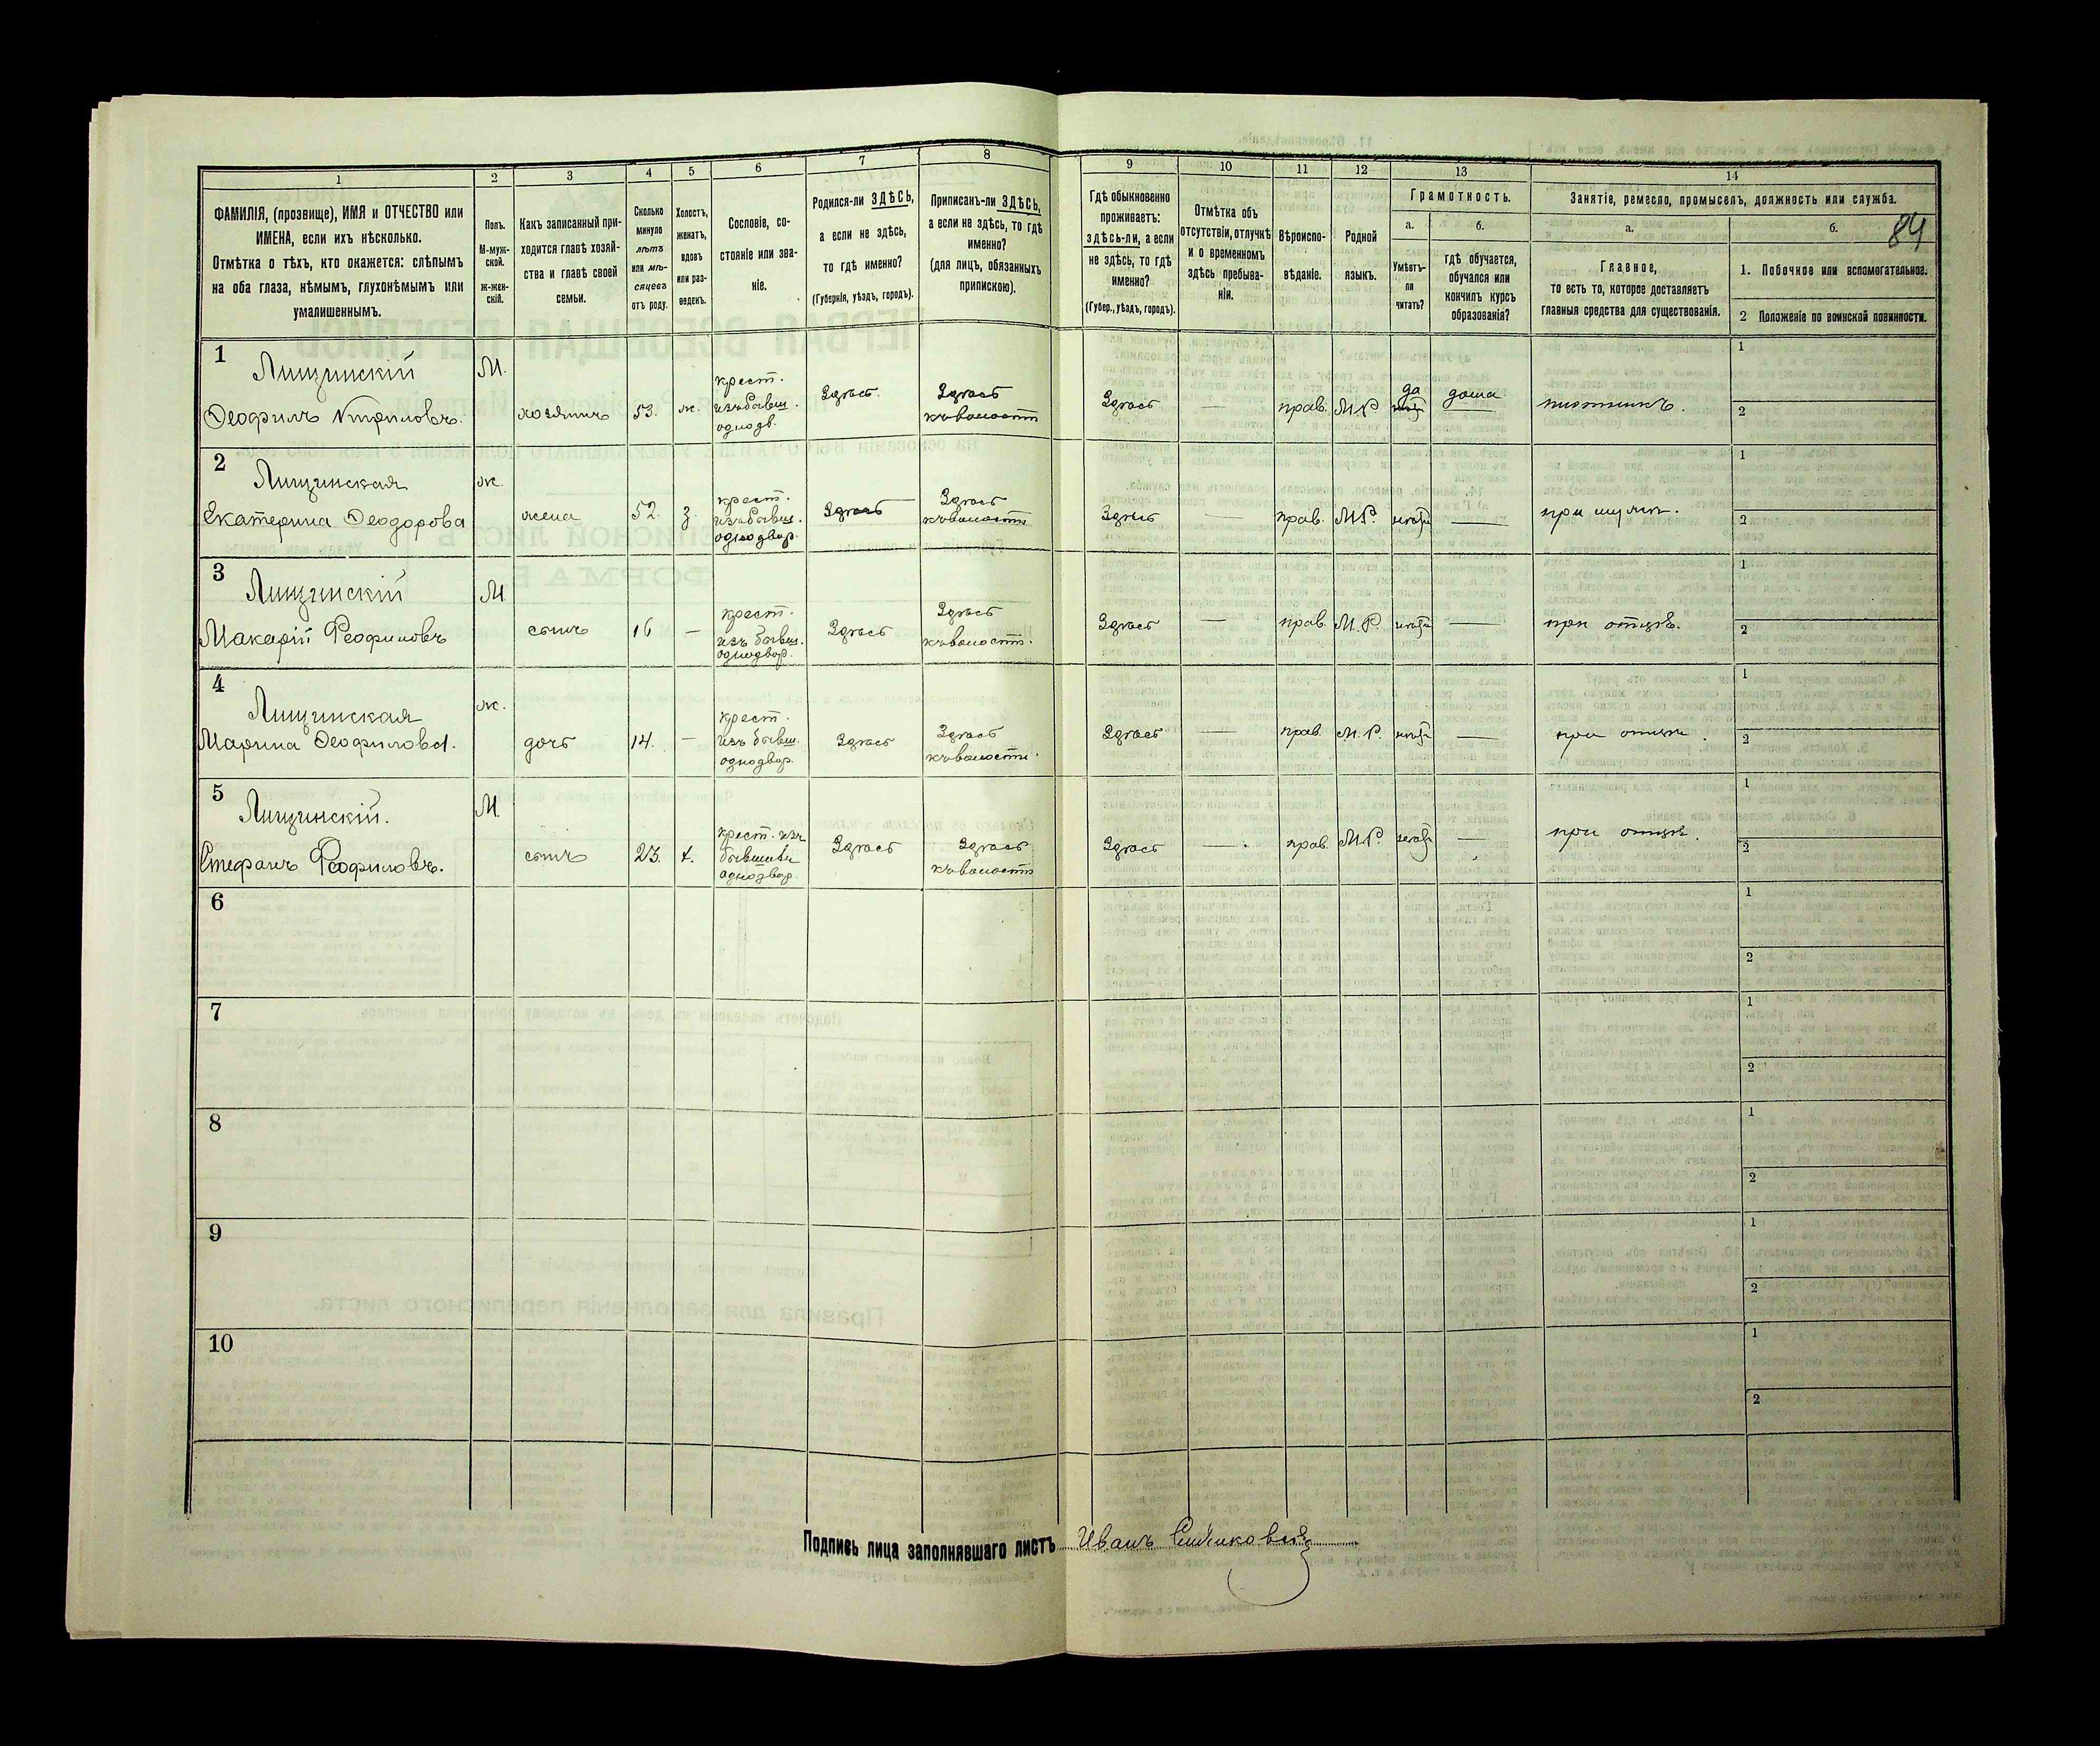 1 2 3 4 5 6 7 8 9 10 11 12 13 14
ФАМИЛІЯ, (прозвище), ИМЯ и ОТЧЕСТВО или
ИМЕНА, если ихъ нѣсколько.
Отмѣтка о тѣхъ, кто окажется: слѣпымъ
на оба глаза, нѣмымъ, глухонѣмымъ или
умалишеннымъ.
Полъ.
М-муж-
ской.
Ж-жен-
скій.
Какъ записанный при-
ходится главѣ хозяй-
ства и главѣ своей
семьи.
Сколько
минуло
лѣтъ
или мѣ-
сяцевъ
отъ роду.
Холостъ,
женатъ,
вдовъ
или раз-
веденъ.
Сословіе, со-
стояніе или зва-
ніе.
Родился-ли ЗДѢСЬ,
а если не здѣсь,
то гдѣ именно?
(Губернія, уѣздъ, городъ).
Приписанъ-ли ЗДѢСЬ,
а если не здѣсь, то гдѣ
именно?
(для лицъ, обязанныхъ
припискою).
Гдѣ обыкновенно
проживаетъ:
здѣсь-ли, а если
не здѣсь, то гдѣ
именно?
(Губер., уѣздъ, городъ).
Отмѣтка объ
отсутствіи, отлучкѣ
и о временномъ
здѣсь пребыва-
ніи.
Вѣроиспо-
вѣданіе.
Родной
языкъ.
Грамотность.
а.
Умѣетъ-
ли
читать?
б.
гдѣ обучается,
обучался или
кончилъ курсъ
образованія?
Занятіе, ремесло, промыселъ, должность или служба.
84
а.
Главное,
то есть то, которое доставляетъ
главныя средства для существованія.
б.
1. Побочное или вспомогательное.
2 Положеніе по воинской повинности.
1
Лищинскій
Ѳеофилъ Кириловъ.
М.
хозяинъ
53.
ж.
крест.
изъ бывш.
однодв.
Здѣсь.
Здѣсь
къ волости
Здѣсь
—
прав.
М.Р.
да
дома
плотникъ.
1
2
2
Лищинская
Екатерина Ѳеодорова
ж.
жена
52.
з.
крест.
изъ бывш.
однодвор.
Здѣсь
Здѣсь
къ волости
Здѣсь
—
прав.
М.Р.
нѣтъ
—
при мужѣ.
1
2
3
Лищинскій
Макарій Ѳеофиловъ
М
сынъ
16
—
крест.
изъ бывш.
однодвор.
Здѣсь
Здѣсь
къ волости.
Здѣсь
—
прав.
М.Р.
нѣтъ
—
при отцѣ.
1
2
4
Лищинская
Марина Ѳеофилова.
ж.
дочь
14.
—
крест.
изъ бывш.
однодвор.
Здѣсь
Здѣсь
къ волости.
Здѣсь
—
прав.
М.Р.
нѣтъ
—
при отцѣ.
1
2
5
Лищинскій.
Стефанъ Ѳеофиловъ.
М.
сынъ
23.
х.
крест. изъ
бывшихъ
однодвор.
Здѣсь
Здѣсь
къ волости
Здѣсь
—.
прав.
М.Р.
нѣтъ
—
при отцѣ.
1
2
6
1
2
7
1
2
8
1
2
9
1
2
10
1
2
Подпись лица заполнявшаго листъ Иванъ